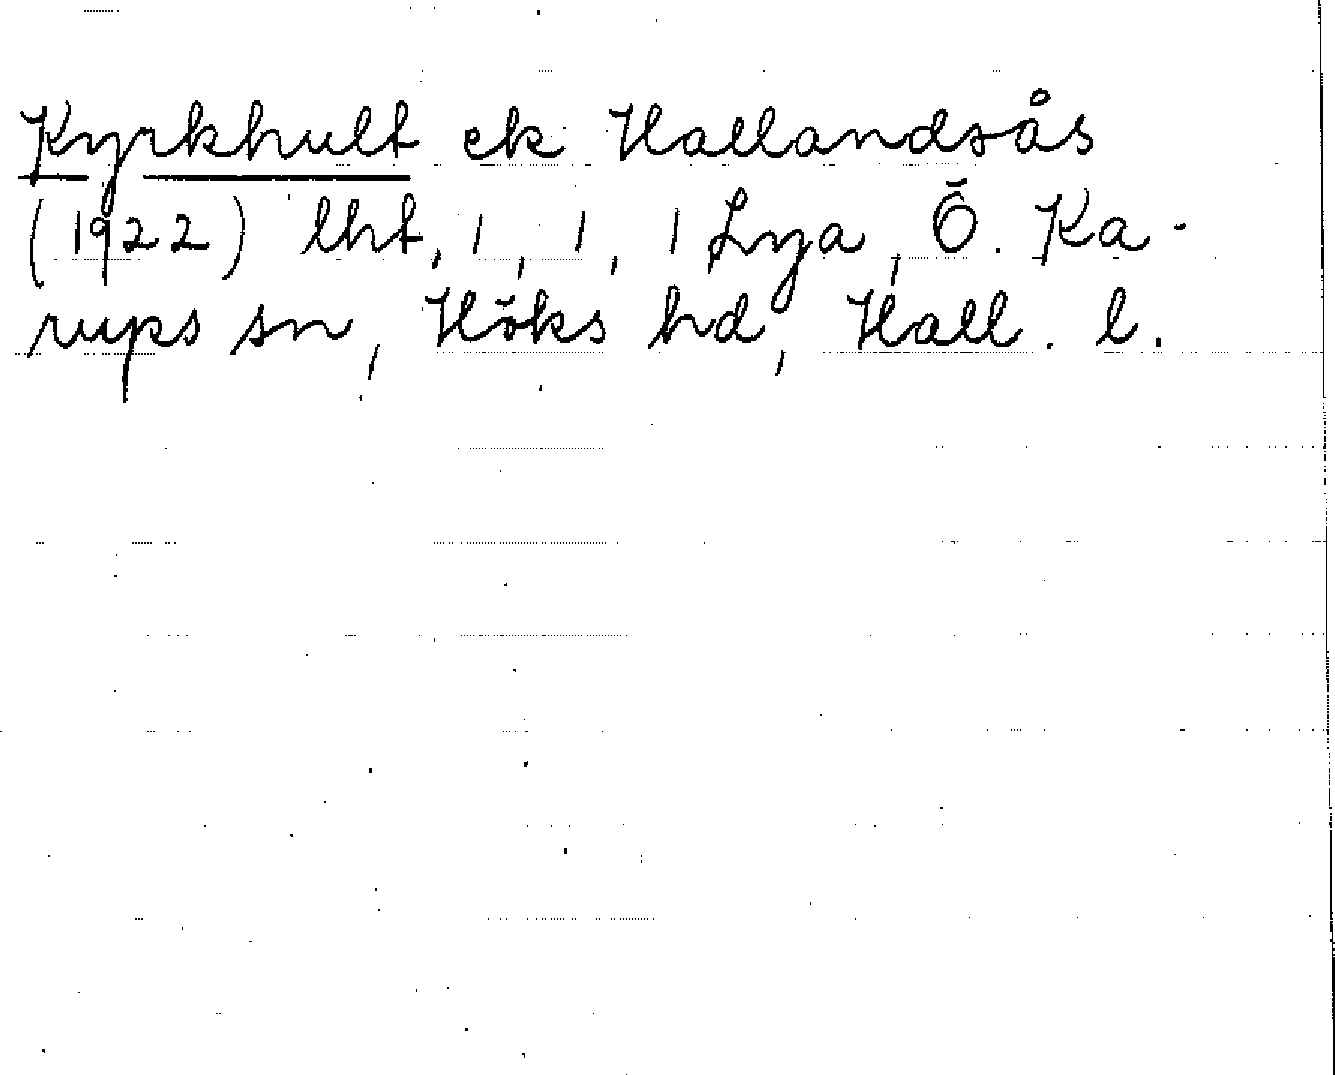 Kyrkhult ek Hallandsås
(1922) lht, 1, 1, 1 Lya, Ö. Ka-
rups sn, Höks hd, Hall. l.